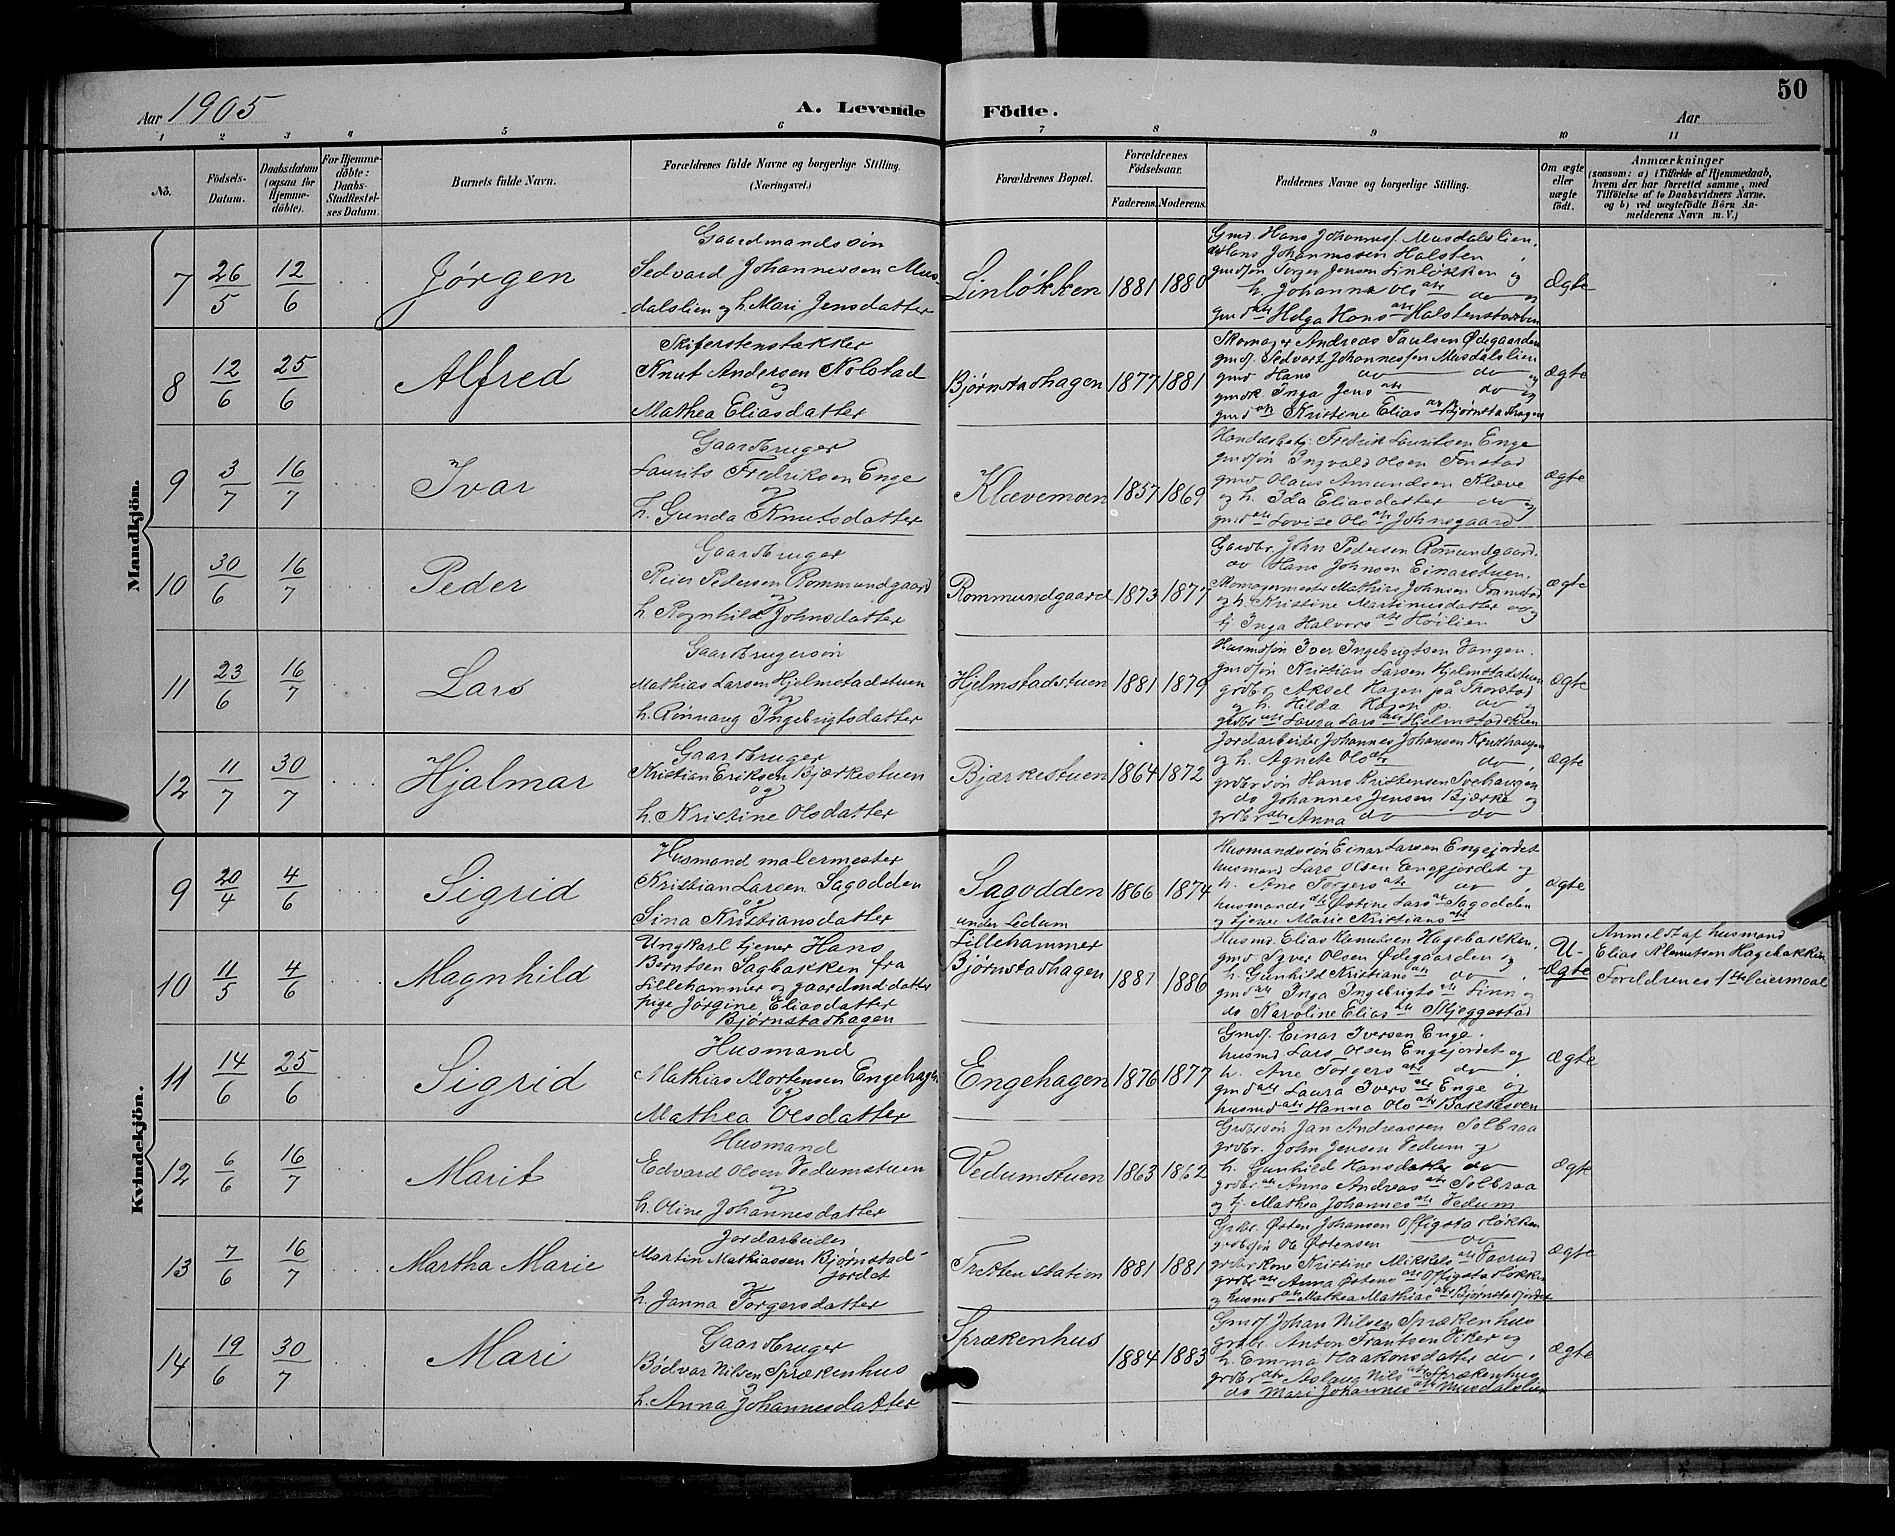 50
Aar 1905
A. Levende Födte.
Aar
1 2 3 4 5 6 7 8 9 10 11
No.
Födsels-Datum.
Daabsdatum (ogsaa for Hjemme-döbte).
For Hjemme-döbte: Daabs-Stadfæstel-ses Datum.
Barnets fulde Navn.
Forældrenes fulde Navne og borgerlige Stilling. (Næringsvei.)
Forældrenes Bopæl.
Forældrenes Födselsaar.
Faderens. Moderens.
Faddernes Navne og borgerlige Stilling.
Om ægte eller uægte födt.
Anmærkninger
(saasom: a) i Tilfælde af Hjemmedaab,
hvem der har forrettet samme, med
Tilföielse af to Daabsvidners Navne.
og b) ved uægtefödte Börn An-
melderens Navn m. V.)
Mandkjön.
7 26/5 12/6 Jørgen
Gaardmandssøn
Sedvard Johannessen Mus-
dalslien og h. Mari Jensdatter
Linløkken 1881 1880
Gmd. Hans Johanness. Musdalslien,
Hans Johannessen Halsten
gmdsøn Torger Jensen Linløkken og
h. Johanne Ols dtr do og
gmd dtr Helga Hans dtr
Ægte
8 12/6 25/6 Alfred
Skiferstenstækker
Knut Andersen Kolstad
og
Mathea Eliasdatter
Bjørnstadhagen 1877 1881
Skomager Andreas Paulsen Ødegaarden
gmds. Sedvart Johannessen Musdalslien
gmd Hans do do og
gmdk Inga Jens dtr do og
gmd dtr Kristine Elias dtr Bjørnstadhagen
ægte
9 3/7 16/7 Ivar
Gaardbruger
Laurits Fredriksen Enge
og
h. Gunda Knutsdatter
Klævemoen 1857 1869
Handelsbetj. Fredrik Lauritsen Enge
gmdsøn Ingvald Olsen Tonstad
gmd Olaus Amundsen Kleve
og h. Ida Eliasdatter do og
gmd dtr Lovise Ols dtr Johnsgaard
ægte
10 30/6 16/7 Peder
Gaardbruger
Reier Pedersen Rommundgaard
og
h. Rognhild Johnsdatter
Rommundgaard 1873 1877
Gardbr. John Pedersen Rommundgaard.
do Hans Johnsen Einarstuen.
Skomagermester Mathias Johnsen
og h. Kristine Martinusdatter do og
tj. Inga Halvors dtr Høilien
ægte
11 23/6 16/7 Lars
Gaardbrugersøn
Mathias Larsen Hjelmstadstuen
og
h. Rønnaug Ingebrigtsdatter
Hjelmstadstuen 1881 1879
Husmdsøn Iver Ingebrigtsen Vangen.
gmdsøn Kristian Larsen Hjelmstadstuen
grdbr Aksel Hagen på Thorstad
og h. Hilda Hagen p. do og
grdbr dtr Laura Lars dtr Hjelmstadstuen
ægte
12 11/7 30/7 Hjalmar
Gaardbruger
Kristian Eriksen Bjærkestuen
og
h. Kristine Olsdatter
Bjærkestuen 1864 1872
Jordarbeider Johannes Johansen Krukhaugen
og h. Agnete Ols dtr do,
grdbr søn Hans Kristensen
do Johannes Jensen Bjerke og
grdbr dtr Anna do do
ægte
Kvindekjön.
9 20/4 4/6 Sigrid
Husmand malermester
Kristian Larsen Sagodden
og
Sina Kristiansdatter
Sagodden 1866 1874
Husmandssøn Einar Larsen Engejordet
husmand Lars Olsen Engejordet og
h. Ane Torgers dtr do,
husmands dtr Østine Lars dtr Sagodden
og tjener Marie Kristians dtr
ægte
10 11/5 4/6 Magnhild
Ungkarl tjener Hans
Berntsen Sagbakken fra
Lillehammer og gaardmd datter
pige Jørgine Eliasdatter
Bjørnstadhagen
under Ledum
Lillehammer
Bjørnstadhagen 1881 1886
Husmd. Elias Klemetsen Hagebakken,
gmd Syver Olsen Ødegaarden og
h. Gunhild Kristians dtr do
gmd dtr Inga Ingebrigts dtr Linn og
do Karoline Elias dtr Skjeggestad
U-
Ægte
Anmeldt af husmand
Elias Klemetsen Hagebakken
Foreldrenes 1ste leiermaal
11 14/6 25/6 Sigrid
Husmand
Mathias Mortensen Engehagen
og
Mathea Olsdatter
Engehagen 1876 1877
Gmds. Einar Iversen Enge
husmd. Lars Olsen Engejordet og
h. Ane Torgers dtr do,
gmd dtr Laura Ivers dtr Enge og
husmd dtr Hanna Ols dtr Bakkesven
ægte
12 6/6 16/7 Marit
Husmand
Edvard Olsen Vedumstuen
og
h. Oline Johannesdatter
Vedumstuen 1863 1862
Grdbrsøn Jan Andreassen Solbraa
grdbr. John Jensen Vedum og
h. Gunhild Hansdatter do
grdbr. dtr Anna Andreas dtr Solbraa
og tj. Mathea Johannes dtr Vedum
ægte
13 7/6 16/7 Martha Marie
Jordarbeider
Martin Mathiassen Bjørnstad-
jordet
h. Janna Torgersdatter
Tretten station 1881 1881
Grdbr. Østen Johansen Offigstadløkken
grdbrsøn Ole Østensen do
grdbr kone Kristine Mikkels dtr
grdbr dtr Anna Østens dtr Offigstadløkken
og husmd dtr Mathea Mathias dtr Bjørnstadjordet
ægte
14 19/6 30/7 Mari
Gaardbruger
Bødvar Nilsen Sprækenhus
og
h. Anna Johannesdatter
Sprækenhus 1884 1883
Gmds Johan Nilsen Sprækenhus
grdbr. Anton Frantsen Viker og
h. Emma Haakonsdatter do,
grdbr dtr Aslaug Nils dtr Sprækenhus
do Mari Johannes dtr Musdalslien
ægte